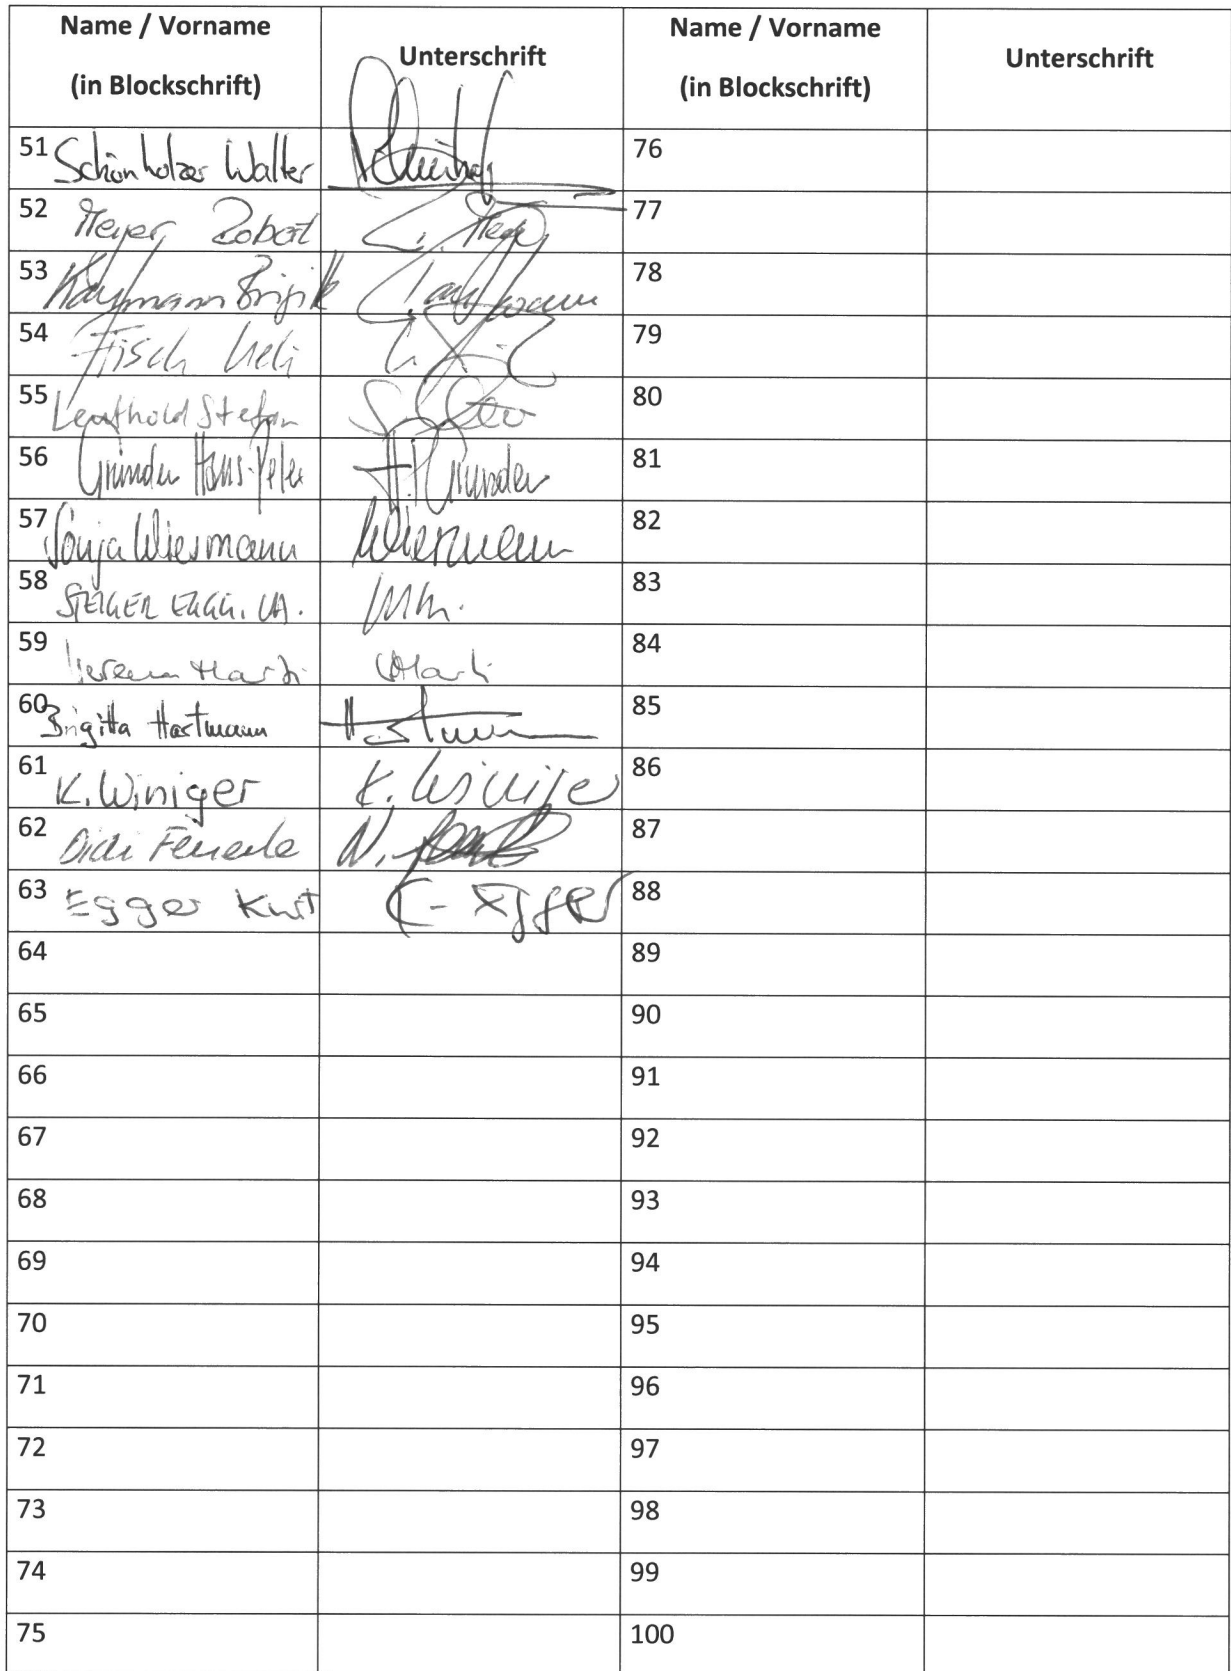 Name / Vorname
(in Blockschrift)
Unterschrift
Name / Vorname
(in Blockschrift)
Unterschrift
51 Schönholzer Walter
76
52 Meyer Robert
77
53 Kaufmann Brigitte
Kaufmann
78
54 Fisch Ueli
79
55 Leuthold Stefan
80
56 Grunder Hans-Peter H.P. Grunder
81
57 Sonja Wiesmann Wiesmann
82
58 STEIGER EGGLI
83
59 Verena Marti VMarti
84
60 Brigitta Hartmann Hartmann
85
61 K. Winiger K. Winiger
86
62 Didi Feuerle
87
63 Egger Kurt K. Egger
88
64
89
65
90
66
91
67
92
68
93
69
94
70
95
71
96
72
97
73
98
74
99
75
100